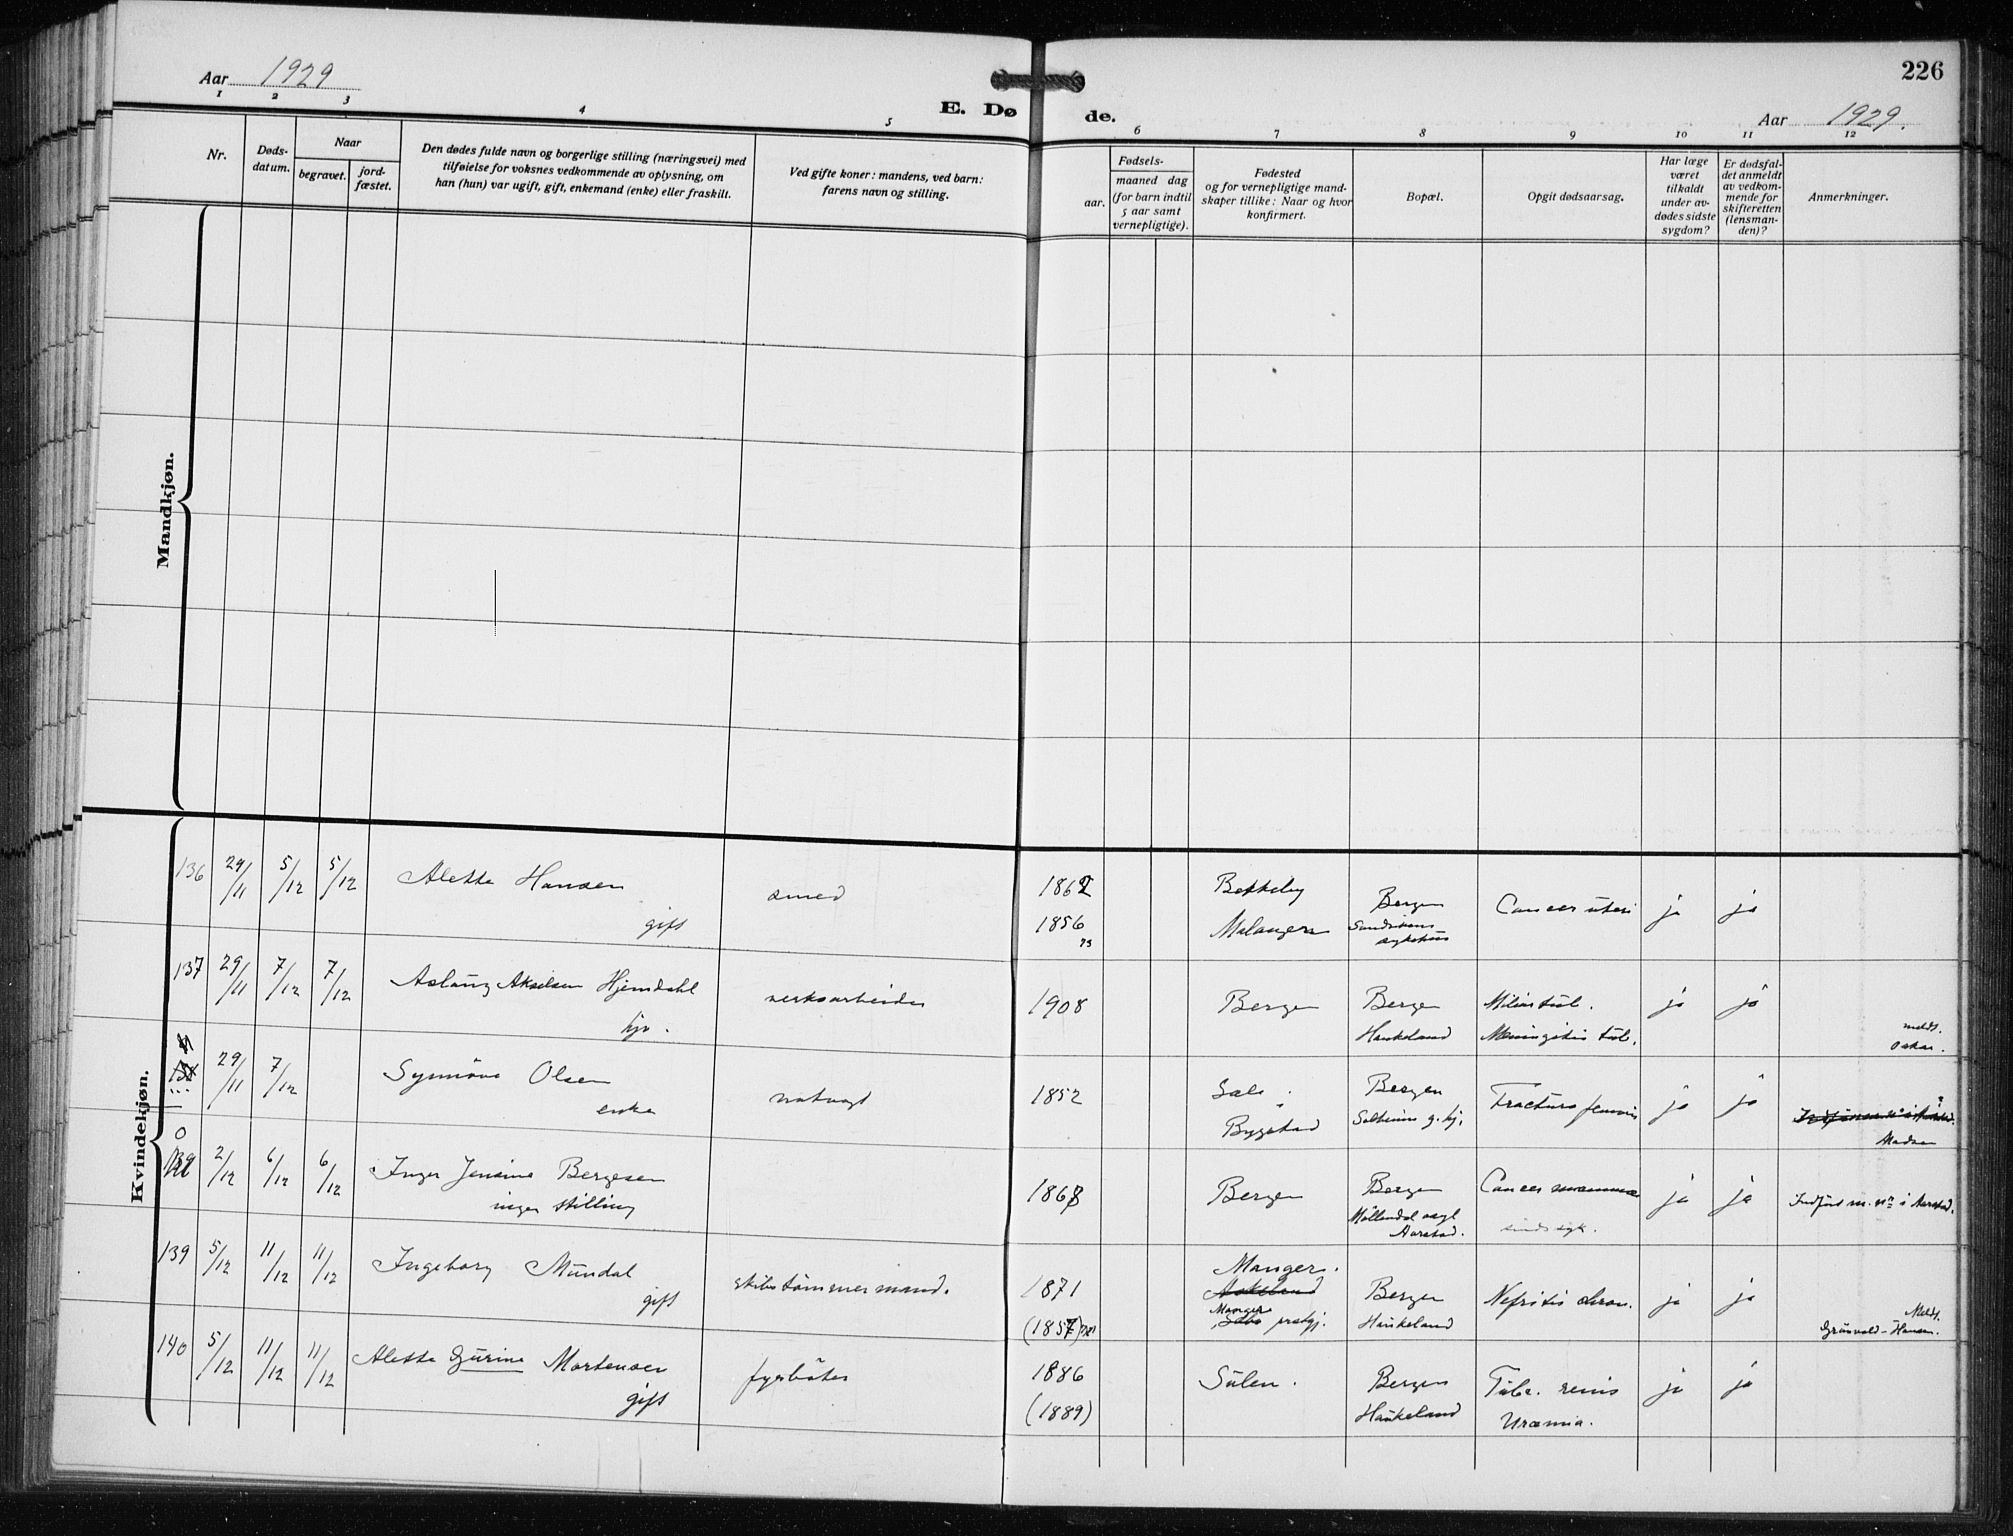 226
Aar 1929
E. Døde.
Aar 1929.
1 2 3 4 5 6 7 8 9 10 11 12
Nr.
Døds-
datum.
Naar
begravet.
jord-
fæstet.
Den dødes fulde navn og borgerlige stilling (næringsvei) med
tilføielse for voksnes vedkommende av oplysning, om
han (hun) var ugift, gift, enkemand (enke) eller fraskilt.
Ved gifte koner: mandens, ved barn:
farens navn og stilling.
Fødsels-
aar.
maaned dag
(for barn indtil
5 aar samt
vernepligtige).
Fødested
og for vernepligtige mand-
skaper tillike: Naar og hvor
konfirmert.
Bopæl.
Opgit dødsaarsag.
Har læge
været
tilkaldt
under av-
dødes sidste
sygdom?
Er dødsfal-
det anmeldt
av vedkom-
mende for
skifteretten
(lensman-
den)?
Anmerkninger.
Mandkjøn.
Kvindekjøn.
136 29/11 5/12 5/12 Alette Hansen
gift
smed
1862
1856
Malangen
Bergen
Sandvikens
sykehus
Cancer uteri
ja ja
137 29/11 7/12 7/12 Aslaug Akselsen Hjemdahl
hjv.
verksarbeider
1908
Bergen
Bergen
Haukeland
Miliær tub.
Meningitis tub.
ja ja
meldt.
29/11 7/12 Synnöve Olsen
enke
natvagt
1852
Bygstad
Bergen
Solheim g. hj.
Fractura femoris
ja ja
Madsen
0
2/12 6/12 6/12 Inger Jensine Bergesen
ingen stilling
1868
Bergen
Bergen
Möllendal
Aarstad.
Cancer mammae
sindssyk.
ja ja
Indført m. nr i Aarstad.
139 5/12 11/12 11/12 Ingeborg Mundal
gift
skibstömmermand.
1871
(1857)
Manger.
Askeland
Manger
prstgj.
Bergen
Haukeland
Nefritis chron.
ja ja
Meldt.
Grünvald-Hansen.
140 5/12 11/12 11/12 Alette Gurine Mortensen
gift
fyrböter
1886
(1889)
Sulen.
Bergen
Haukeland
Tub. renis
Uræmia.
ja ja